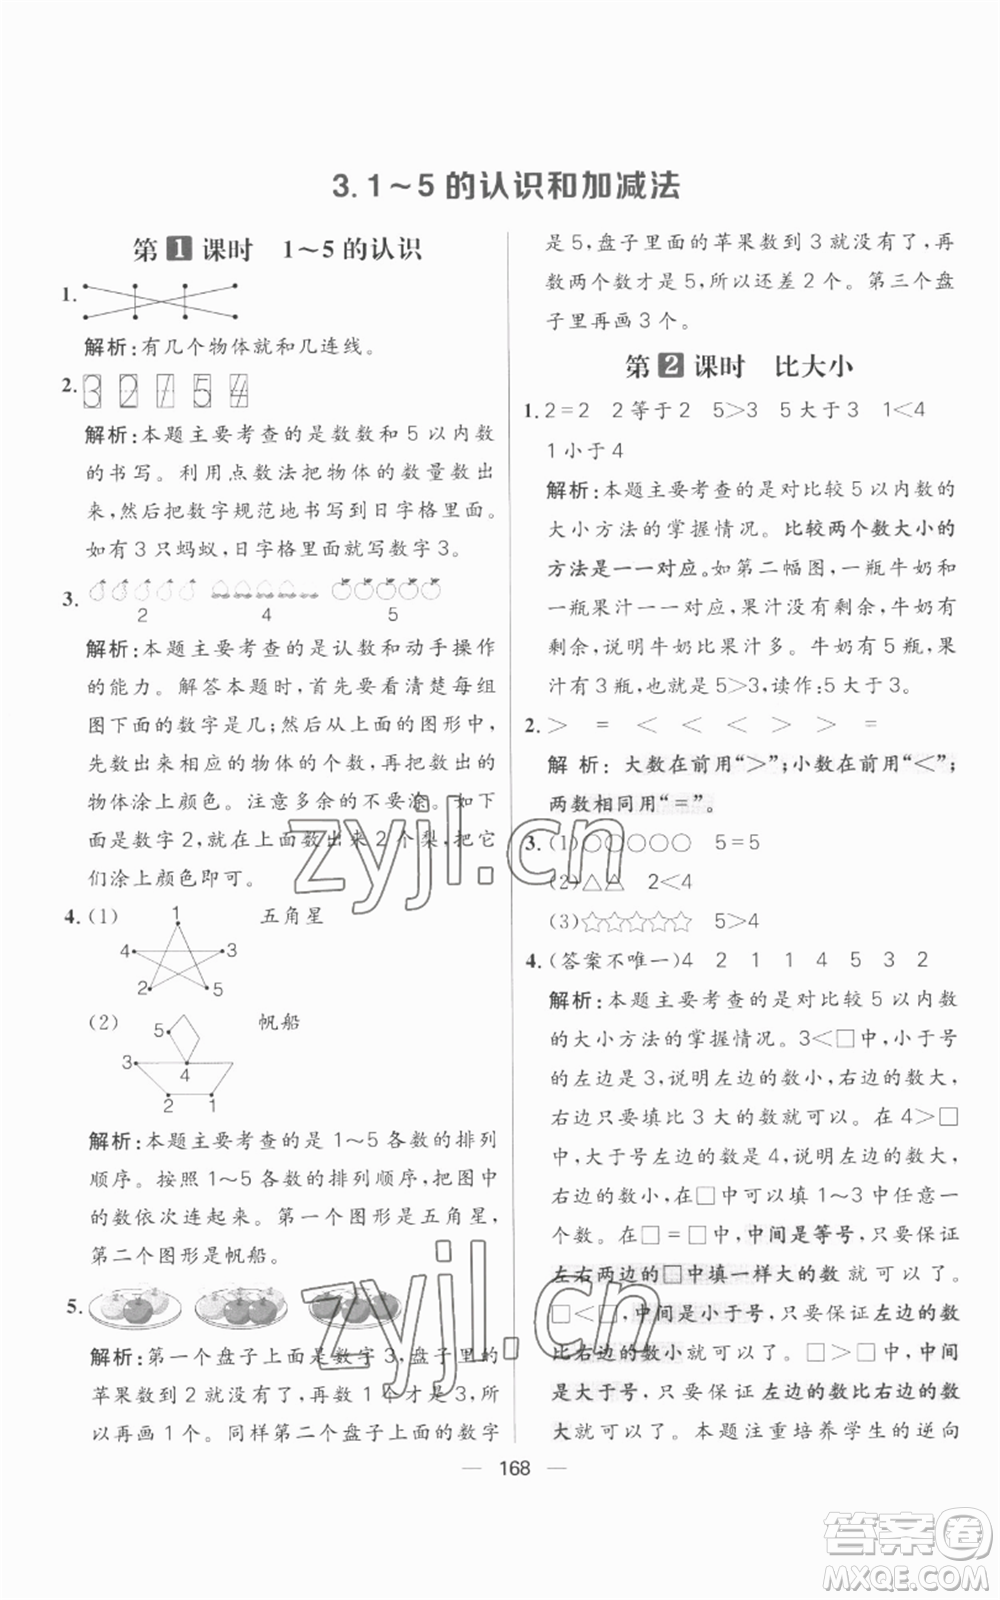 3. 1～5的认识和加减法
第1课时　1～5的认识
1.
解析:有几个物体就和几连线。
2. 3 2 1 5 4
解析:本题主要考查的是数数和5以内数
的书写。利用点数法把物体的数量数出
来,然后把数字规范地书写到日字格里面。
如有3只蚂蚁,日字格里面就写数字3。
3.
2　4　5
解析:本题主要考查的是认数和动手操作
的能力。解答本题时,首先要看清楚每组
图下面的数字是几;然后从上面的图形中,
先数出来相应的物体的个数,再把数出的
物体涂上颜色。注意多余的不要涂。如下
面是数字2,就在上面数出来2个梨,把它
们涂上颜色即可。
4. (1) 1 2 3 4 5 五角星
(2) 5 3 4 2 1 帆船
解析:本题主要考查的是1～5各数的排列
顺序。按照1～5各数的排列顺序,把图中
的数依次连起来。第一个图形是五角星,
第二个图形是帆船。
5.
解析:第一个盘子上面是数字3,盘子里的
苹果数到2就没有了,再数1个才是3,所
以再画1个。同样第二个盘子上面的数字
是5,盘子里面的苹果数到3就没有了,再
数两个数才是5,所以还差2个。第三个盘
子里再画3个。
第2课时　比大小
1. 2=2　2等于2　5>3　5大于3　1<4
1小于4
解析:本题主要考查的是对比较5以内数的
大小方法的掌握情况。比较两个数大小的
方法是一一对应。如第二幅图,一瓶牛奶和
一瓶果汁一一对应,果汁没有剩余,牛奶有
剩余,说明牛奶比果汁多。牛奶有5瓶,果
汁有3瓶,也就是5>3,读作:5大于3。
2. >　=　<　<　<　>　>　<　=
解析:大数在前用“>”;小数在前用“<”;
两数相同用“=”。
3. (1)○○○○○　5=5
(2)△△　2<4
(3)☆☆☆☆☆　5>4
4. (答案不唯一)4　2　1　1　4　5　3　2
解析:本题主要考查的是对比较5以内数
的大小方法的掌握情况。3<□中,小于号
的左边是3,说明左边的数小,右边的数大,
右边只要填比3大的数就可以了。在4>□
中,大于号左边的数是4,说明左边的数大,
右边的数小,在□中可以填1～3中任意一
个数。在□=□中,中间是等号,只要保证
左右两边的□中填一样大的数就可以了。
□<□中,中间是小于号,只要保证左边的数
比右边的数小就可以了。□>□中,中间
是大于号,只要保证左边的数比右边的数
大就可以了。本题注重培养学生的逆向
168
zyjl.cn
zyjl.cn
答案圈
MXQE.COM